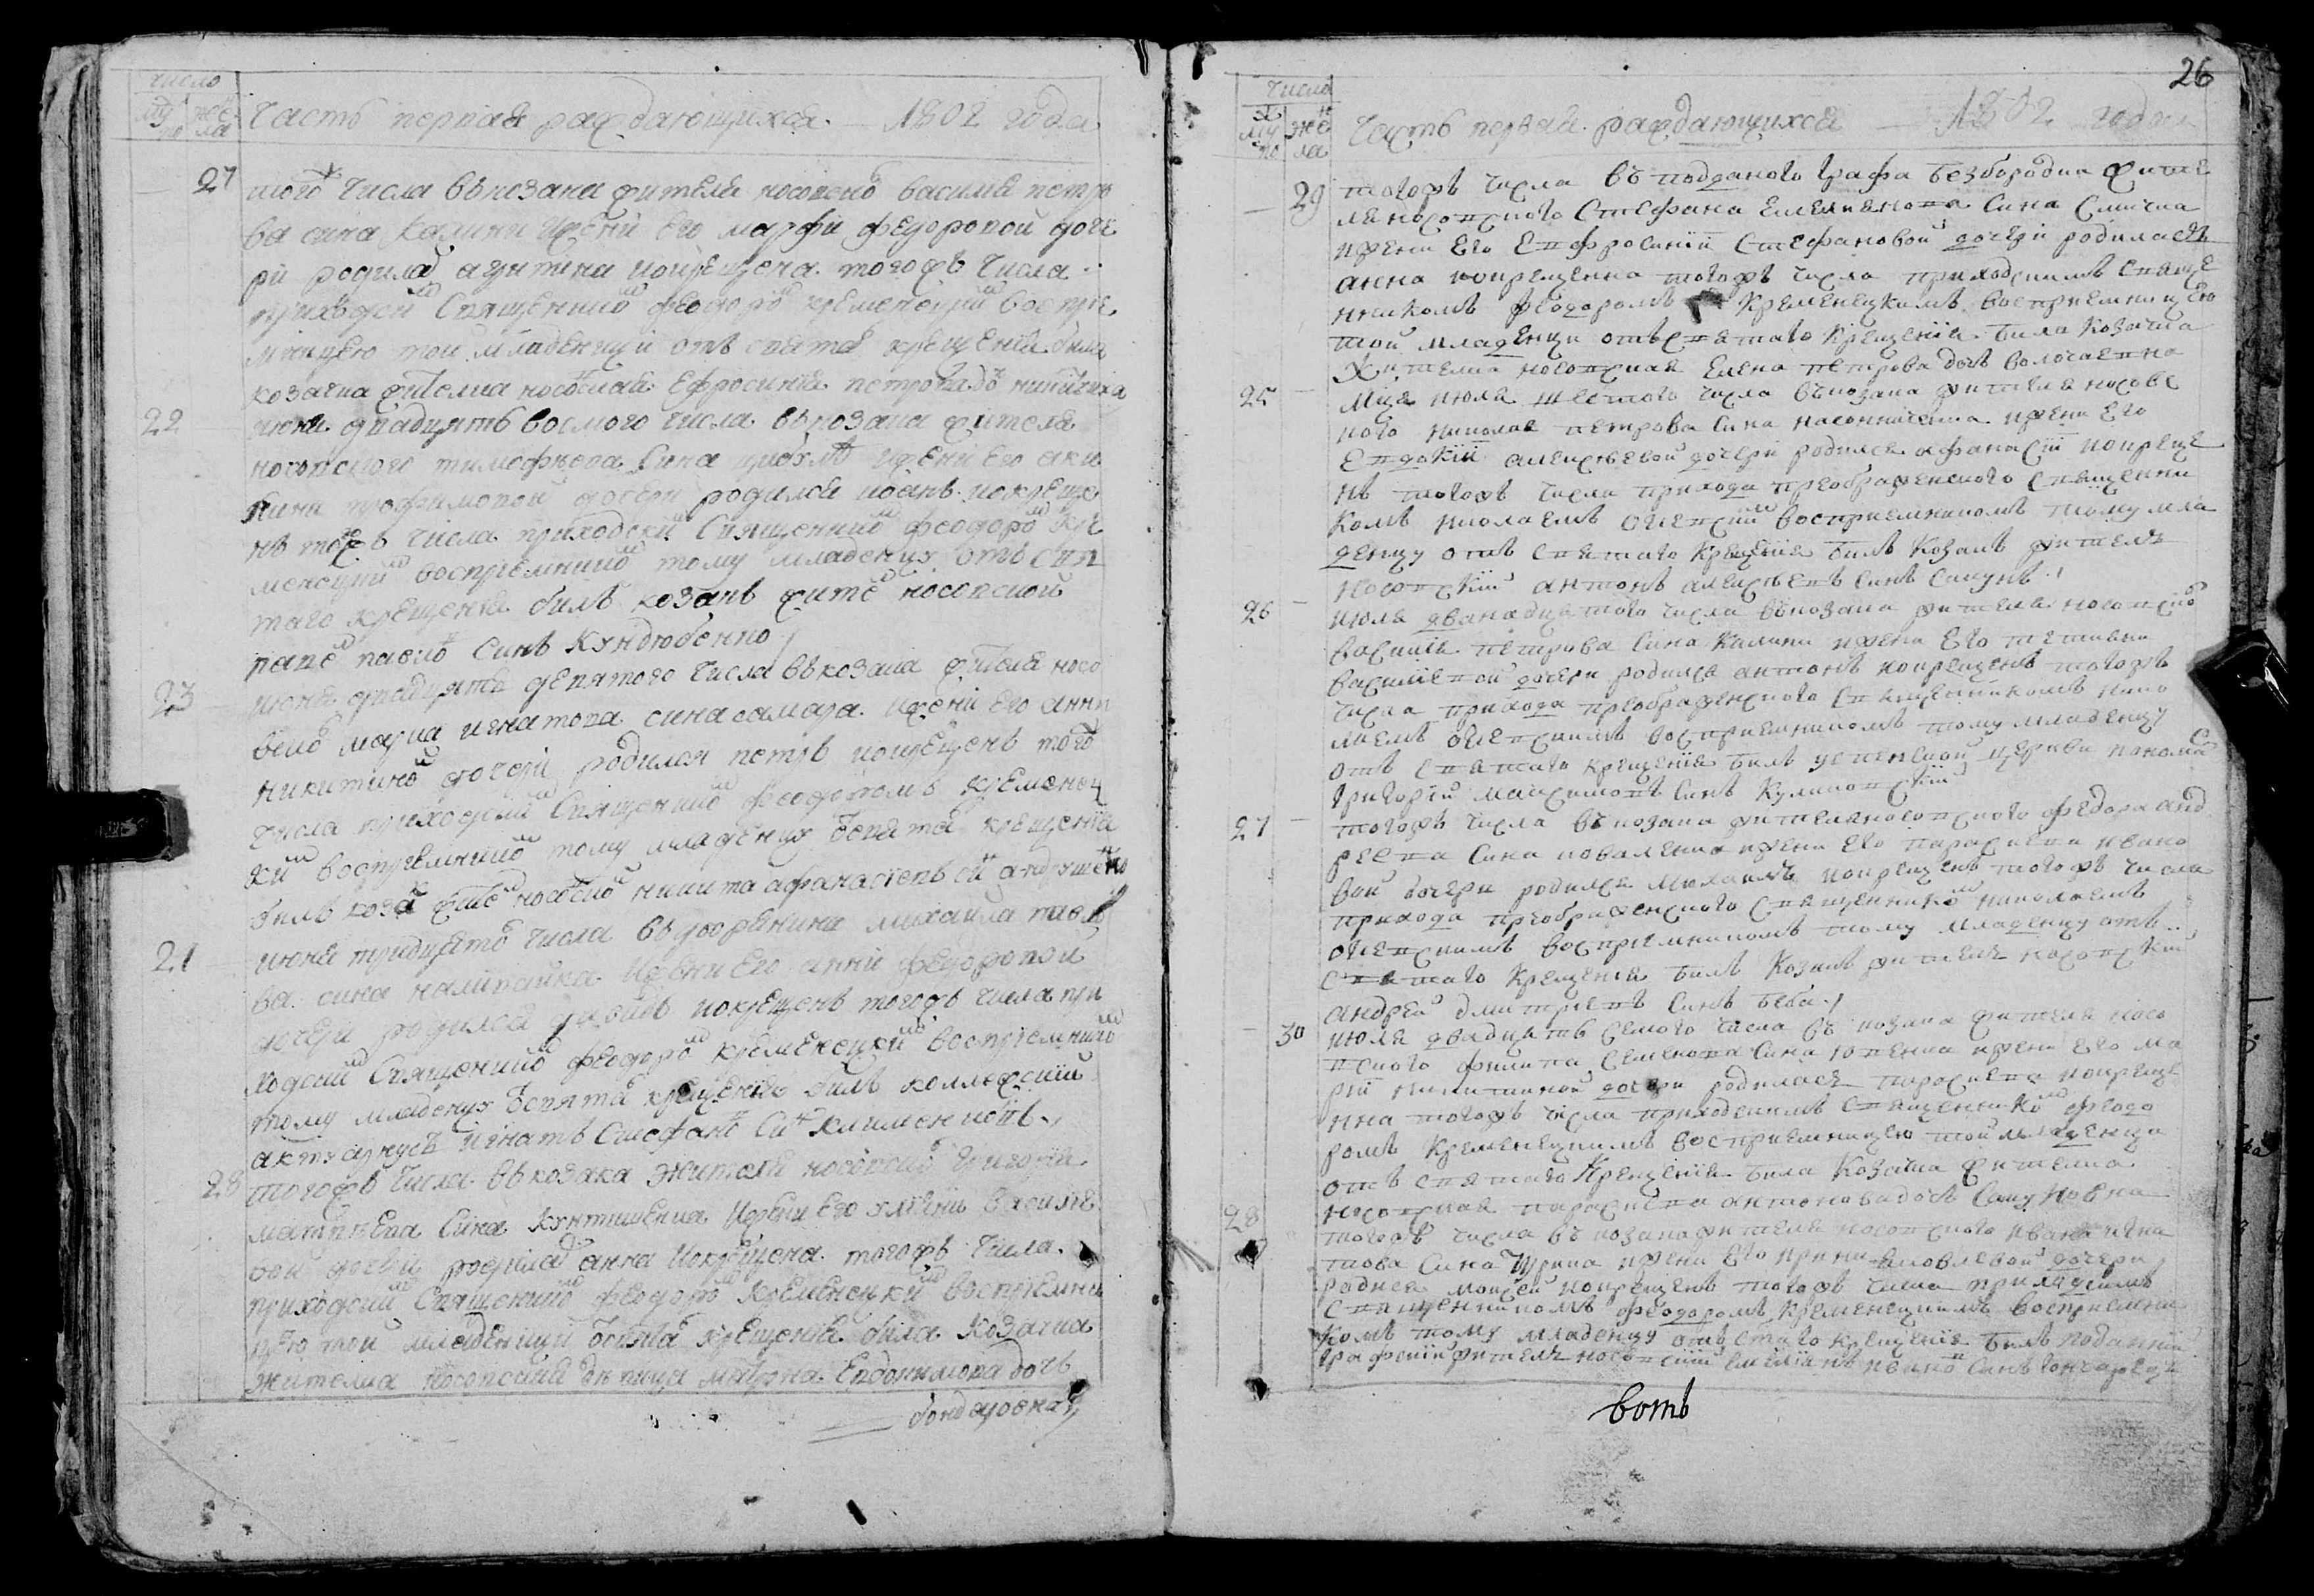 число
му по
же ла
Часть первая раждающихся 1802 года
27
того числа въ козака жителя носовско василия петро
ва сина Калини ижени его марфи федоровой доче
ри родила агрипина икрещена тогожъ числа
приходски священнико феодоро кременецки восприе
мницею тои младеници отъ свята крещения била
козачка жителка носовская Ефросиния петрова до
22
июня двадцять восмого числа въ козака жителя
носовского тимофеева Сина ижени его аки
лини трофимовои дочери родился иоанъ икреще
нъ тогожъ числа приходски Священнико феодоро кре
менецки восприемнико тому младенцу отъ свя
таго крещения билъ козакъ жите носовской
павелъ Синъ Кундюбенко
23
июня двадцять девятого числа въ козака жителя носо
вско марка игнатова сина самара ижени его анни
никитино дочери родился петръ икрещенъ того
числа приходски Священнико феодоромъ кременец
ки восприемнико тому младенцу свята крещения
билъ коза жите носовско никита афанасиевъ си андрушенко
21
июня тридцято числа въ дворянина михаила павло
ва сина наливайка ижени его анни федоровои
дочери родился икрещенъ тогожъ числа при
ходски Священнико феодоро кременецки восприемнико
тому младенцу свята крещения билъ коллежский
актуариусъ игнатъ Стефано Си климентовъ
28
тогожъ числа въ козака жителя носовско григория
матвеева Сина кунтишенка ижени его улияни василие
вои дочери родила анна икрещена тогожъ числа
приходски Священнико феодоро кременецки восприемни
цею тои младеници свята крещения била козачка
жителка носовская девица марфа Евдокимова дочь
бондаровна

26
Число
му по
же ла
Часть первая раждающихся 1802 года
29
тогожъ числа въ подданого графа безбородка жите
ля носовского Стефана Емелиянова Сина Слична
ижени Его Евфросинии Стефановой дочери родилась
анна икрещенна тогожъ числа приходскимъ свяще
нникомъ феодоромъ Кременецкимъ восприемницею
той младенци отъ святаго Крещения била Козачка
Жителка носовская Елена петрова дочь волочаевна
25
Мца июля шестого числа въ козака жителя носовс
кого николая петрова Сина насонниченка ижени Его
Евдокии алексеевой дочери родился афанасий икреще
нъ тогожъ числа прихода преображенского Священни
комъ николаемъ олевский восприемникомъ тому мла
денцу отъ святаго крещения билъ Козакъ житель
носовский антонъ алексеевъ синъ Сакунъ
26
июля дванадцатого числа въ козака жителя носовско
василия петрова Сина Калини ижени Его татияни
василиевой дочери родился антонъ икрещенъ тогожъ
числа прихода преображенского Священникомъ нико
лаемъ олевскимъ восприемникомъ тому младенцу
отъ святаго крещения билъ успенской церкви понома
григорий максимовъ Синъ Куликовский
27
тогожъ числа въ козака жителя носовского федора анд
реева Сина коваленка ижени Его параскеви ивано
вой дочери родился михаилъ икрещенъ тогожъ числа
прихода преображенского Священнико николаемъ
олевскимъ восприемникомъ тому младенцу отъ
святаго Крещения билъ Козакъ житель носовский
андрей дмитриевъ Синъ беба
30
июля двадцать семого числа въ козака жителя носо
вского филипа семенова Сина юшенка ижени Его ма
рии никитиной дочери родилася параскева икреще
нна тогожъ числа приходскимъ священнико феодо
ромъ Кременецкимъ восприемницею той младенци
отъ святаго Крещения била Козачка жителка
носовская параскева антонова дочь Сакуновна
28
тогожъ числа въ козака жителя носовского ивана игна
това Сина Щурика ижени Его ирини яковлевой дочери
родился моисей икрещенъ тогожъ числа приходскимъ
священникомъ феодоромъ Кременецкимъ восприемни
комъ тому младенцу отъ стаго крещения билъ подданий
графский житель носовский емелиянъ ивановъ Синъ гончаренко
вотъ